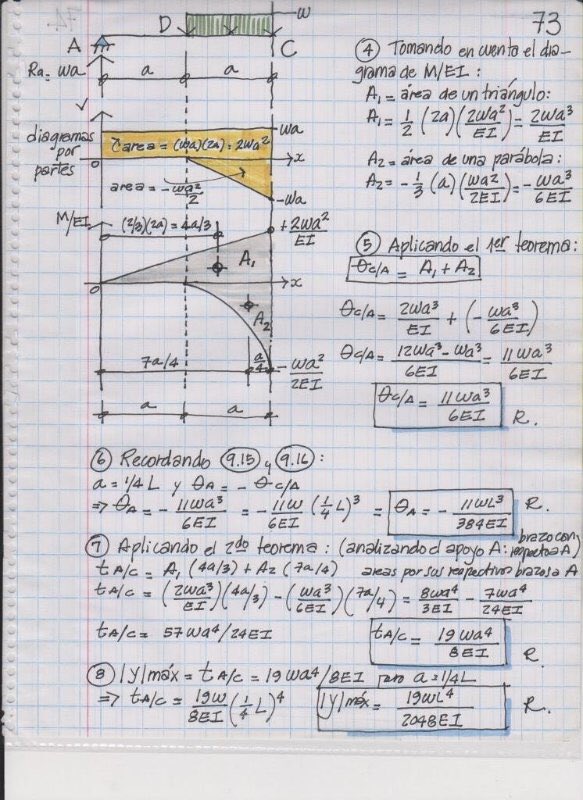 73
D
w
A
C
Ra = wa
a
a
diagramas
por
partes
wa
área = (wa)(2a) = 2wa²
x
0
área = -wa²/2
-wa
M/EI
(2/3)(2a) = 4a/3
+2wa²/EI
A₁
x
0
A₂
7a/4
a/4
-wa²/2EI
a
a
④ Tomando en cuenta el dia-
grama de M/EI :
A₁ = área de un triángulo:
A₁ = 1/2 (2a)(2wa²/EI) = 2wa³/EI
A₂ = área de una parábola:
A₂ = -1/3 (a)(wa²/2EI) = -wa³/6EI
⑤ Aplicando el 1er teorema:
θC/A = A₁ + A₂
θC/A = 2wa³/EI + (-wa³/6EI)
θC/A = 12wa³ - wa³/6EI = 11wa³/6EI
θC/A = 11wa³/6EI R.
⑥ Recordando 9.15 y 9.16 :
a = 1/4 L y θA = - θC/A
⇒ θA = -11wa³/6EI = -11w/6EI (1/4 L)³ = θA = -11wL³/384EI R.
⑦ Aplicando el 2do teorema : (analizando el apoyo A: brazo con respecto a A)
tA/C = A₁ (4a/3) + A₂ (7a/4) areas por sus respectivos brazos a A
tA/C = (2wa³/EI)(4a/3) - (wa³/6EI)(7a/4) = 8wa⁴/3EI - 7wa⁴/24EI
tA/C = 57wa⁴/24EI tA/C = 19wa⁴/8EI R
⑧ |y|máx = tA/C = 19wa⁴/8EI pero a = 1/4L
⇒ tA/C = 19w/8EI (1/4 L)⁴ |y|máx = 19wL⁴/2048EI R.